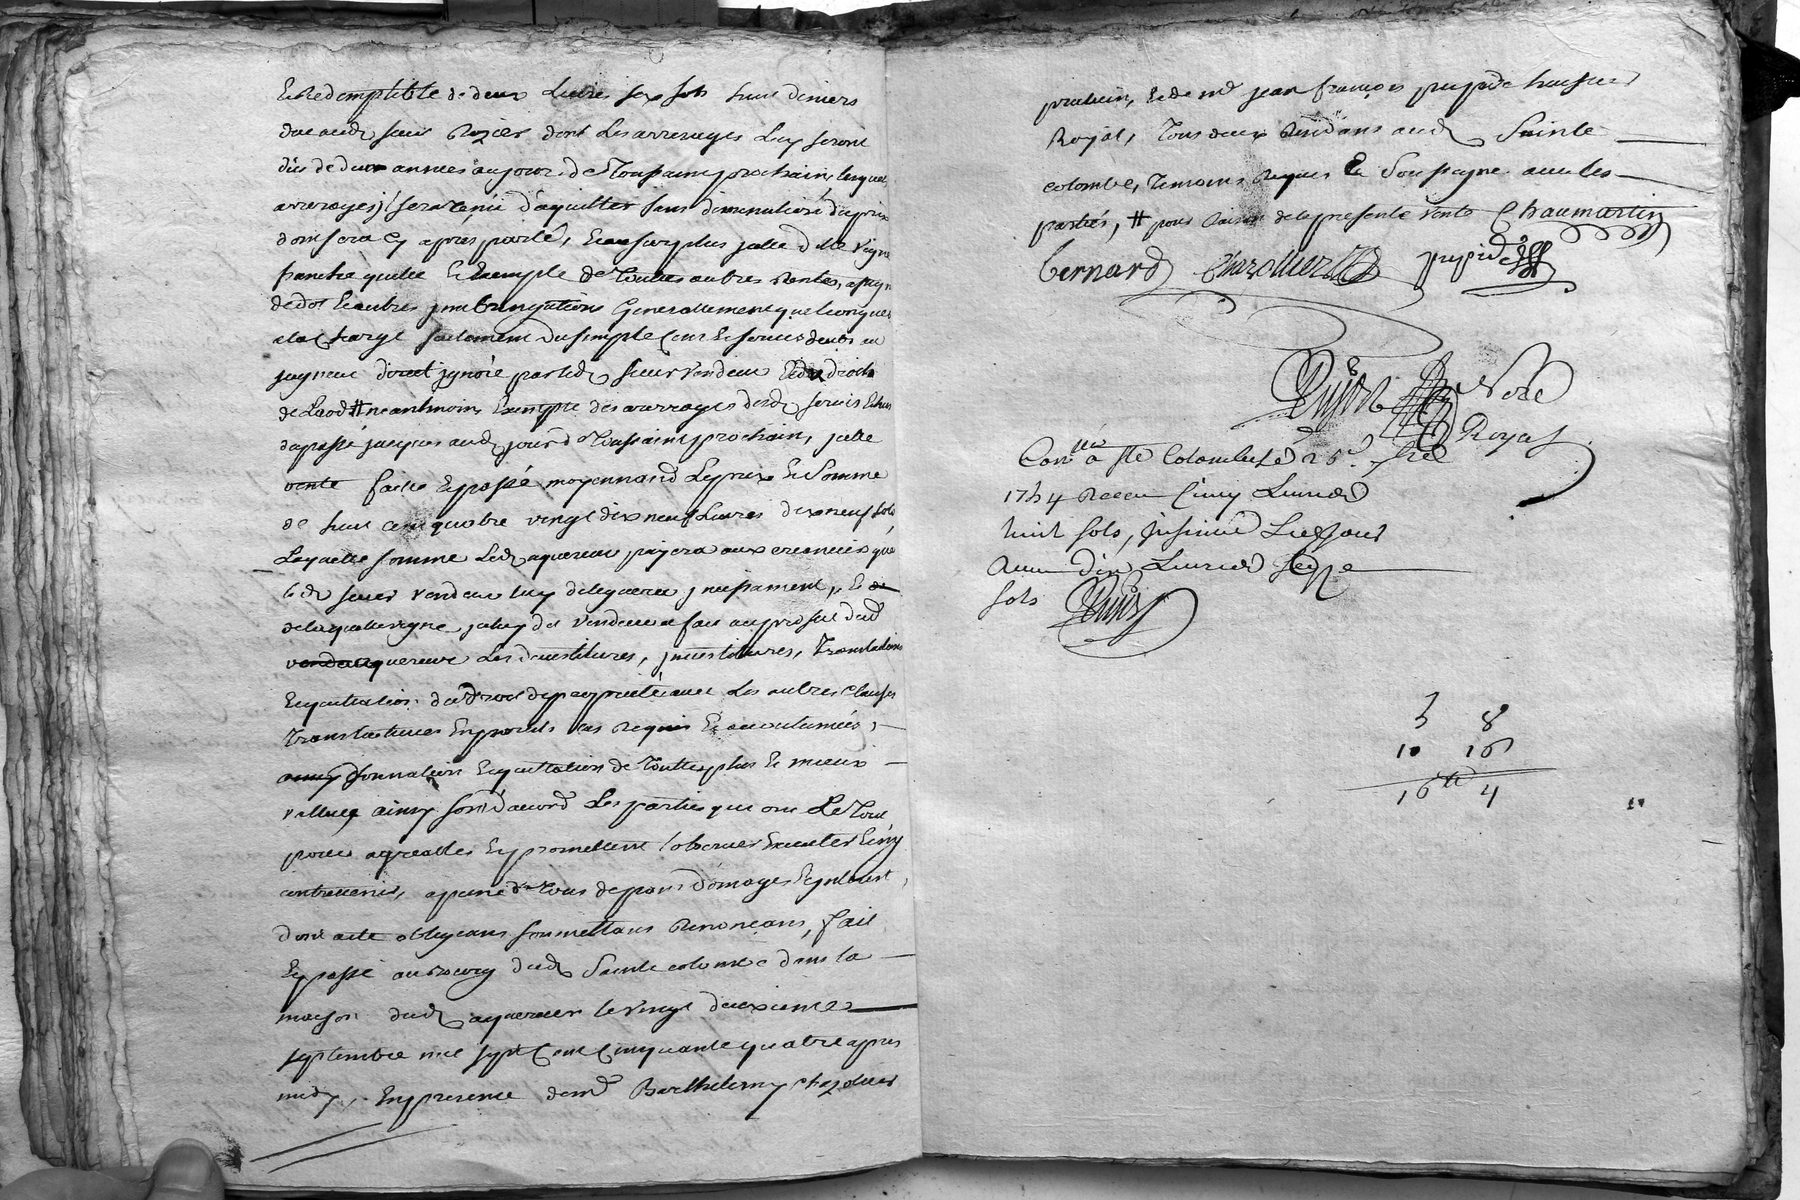 Et Redemptible de deux Livres six sols huit deniers
deue aud sieur Rozier dont Les arrerages Luy seront
dus de deux annees au jour de Toussaint prochain, lesquels
arrerages sera tenu d'aquitter sans diminution du prix
dont sera cy apres parlé, Et au surplus ladte vigne
franche quitte Et Exempte de Toutes autres Rentes,
de dot Et autres jmbrigations Generallement quelconques
a la charge seulement du simple Cens Et servis deubs au
seigneur direct jgnoré par led sieur vendeur Et du droit
de Laod # neantmoins Exempte des arrerages desd servis Echus
du passé jusques aud jour de Toussaint prochain, jcelle
vente faitte Et passée moyennand Le prix Et Somme
de huit cent quatre vingt dix neuf Livres dix neuf sols
Laquelle somme Led aquereur payera aux creanciers que
led sieur vendeur luy deleguera jncessament, Et de
de laquelle vigne jceluy dit vendeur a fait au profit dud
aquereur Les devestitures, jnvestitures, Translations
Et quittation du droit de proprieté avec Les autres clauses
Translatives En pareils cas Requis Et accoutumées,
donnation Et quittation de Toutte plus Et mieux
vallue, ainsy sont d'acord Les parties qui ont Le Tout
pour agreable Et promettent l'observer Executer Et n'y
contrevenir, a peine de Tous depens domages Et jnterest,
dont acte obligeans soumettans Renonceans, fait
Et passé au bourg dud Sainte colombe dans la
maison dud aquereur le vingt deuxieme
septembre mil sept Cent Cinquante quatre apres
midy, En presence de mr Barthelemy chazottier
praticien, Et de mr jean françois pupier huissier
Royal, Tous deux Residans aud Sainte
colombe, Temoins Requis Et Soussigne avec les
parties, # pour Raison de la presente vente Chaumartin
bernard Chazottier pupier
Dupuy Nore
Royal
Conlle a Ste Colombe le 25e 7bre
1754 Receu Cinq Livres
huit sols, jnsinué Led jour
Receu dix Livres seize
sols Dupuy
5 8
10 16
16tt 4